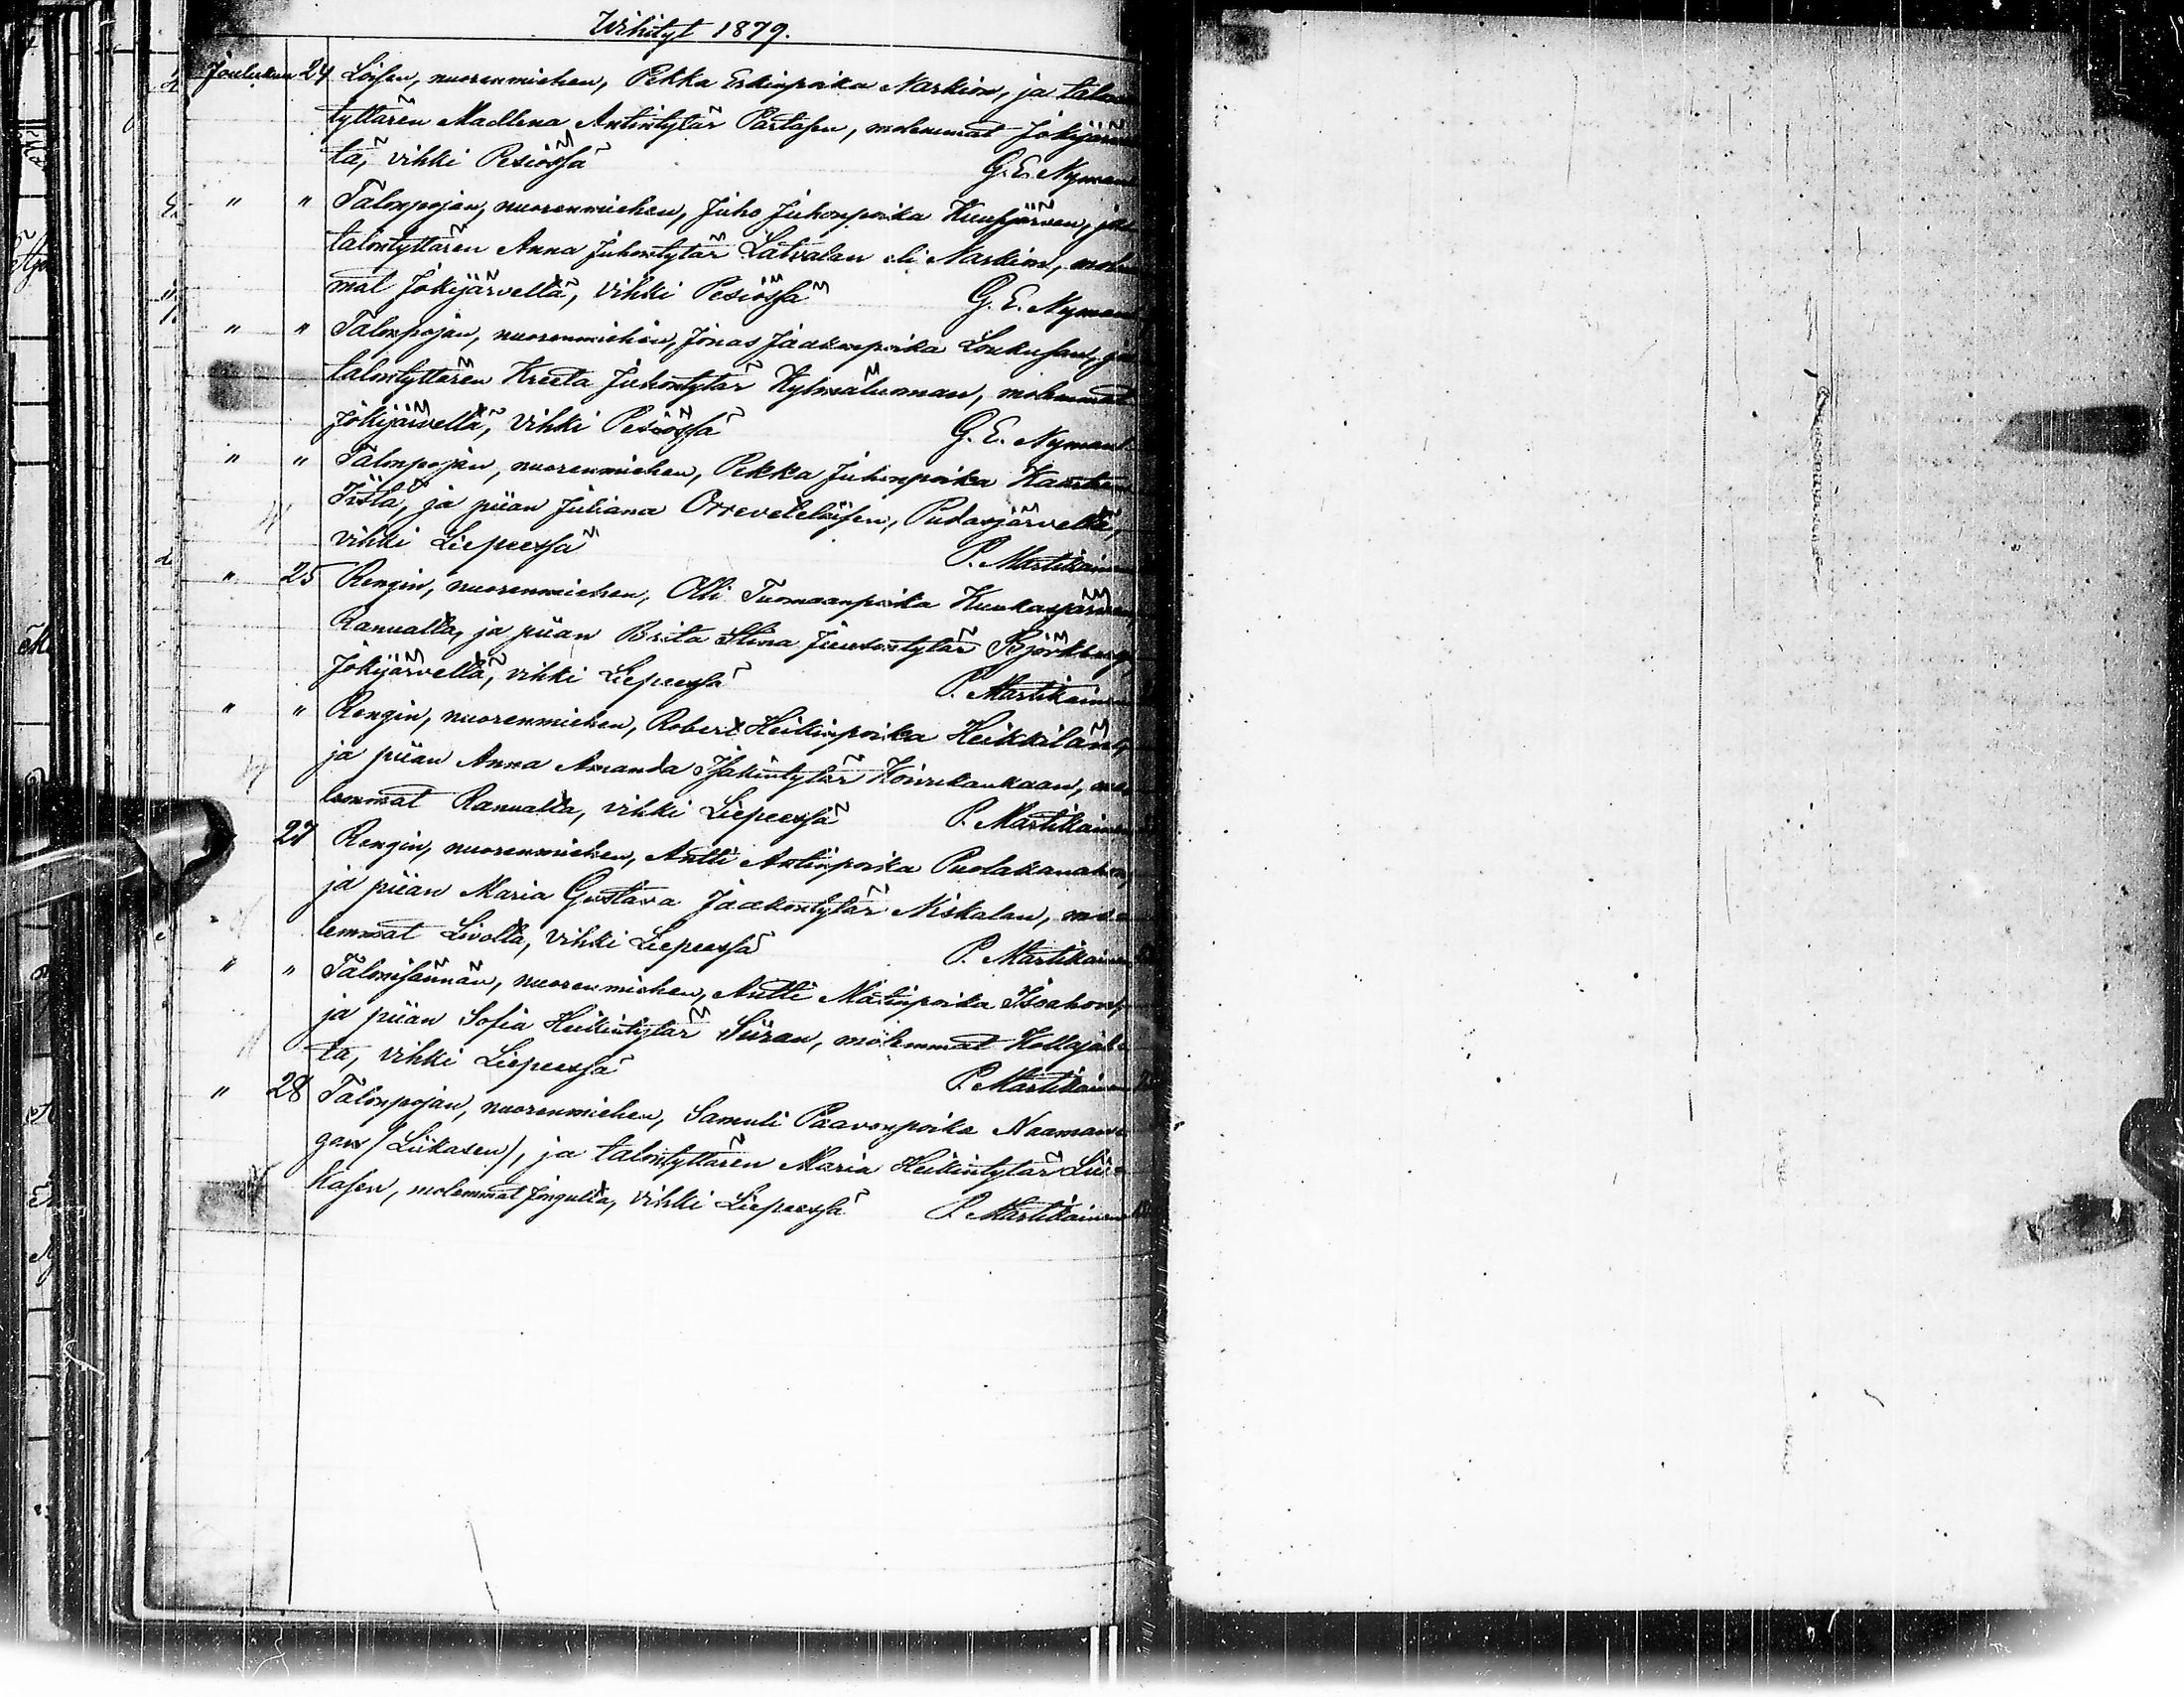 Wihityt 1879.
Joulukuu 24 Loisen, nuorenmiehen, Pekka Erkinpoika Narkion, ja talon
tyttären Madlena Antintytär Partasen, molemmat Jokijärvel
tä, vihki Pesiössä G. E. Nyman
" " Talonpojan, nuorenmiehen, Juho Juhonpoika Kuusjärven, ja
talontyttären Anna Juhontytär Latvalan eli Narkion, molem
mat Jokijärveltä, vihki Pesiössä G. E. Nyman
" " Talonpojan, nuorenmiehen, Jonas Jaakonpoika Loukusan, ja
talontyttären Kreeta Juhontytär Kylmäluoman, molemmat
Jokijärveltä, vihki Pesiössä G. E. Nyman
" " Talonpojan, nuorenmiehen, Pekka Juhonpoika
Iistä, ja piian Juliana Orreveteläisen, Pudasjärveltä,
vihki Liepeessä P. Martikainen
" 25 Rengin, nuorenmiehen, Olli Tuomaanpoika Kuukasjärven,
Ranualta, ja piian Brita Stina Juusontytär Björkberg,
Jokijärveltä, vihki Liepeessä P. Martikainen
" " Rengin, nuorenmiehen, Robert Heikinpoika Heikkilän,
ja piian Anna Amanda Isakintytär Koivukankaan, mo
lemmat Ranualta, vihki Liepeessä P. Martikainen
" 27 Rengin, nuorenmiehen, Antti Antinpoika Puolakanahon,
ja piian Maria Gustava Jaakontytär Niskalan, mo
lemmat Livolta, vihki Liepeessä P. Martikainen
" " Talonisännän, nuorenmiehen, Antti Matinpoika Isoahon,
ja piian Sofia Heikintytär Siiran, molemmat Kollajal
ta, vihki Liepeessä P. Martikainen
" 28 Talonpojan, nuorenmiehen, Samuli Paavonpoika Naaman
gan (Liikasen), ja talontyttären Maria Heikintytär Lii
kasen, molemmat Jongulta, vihki Liepeessä P. Martikainen